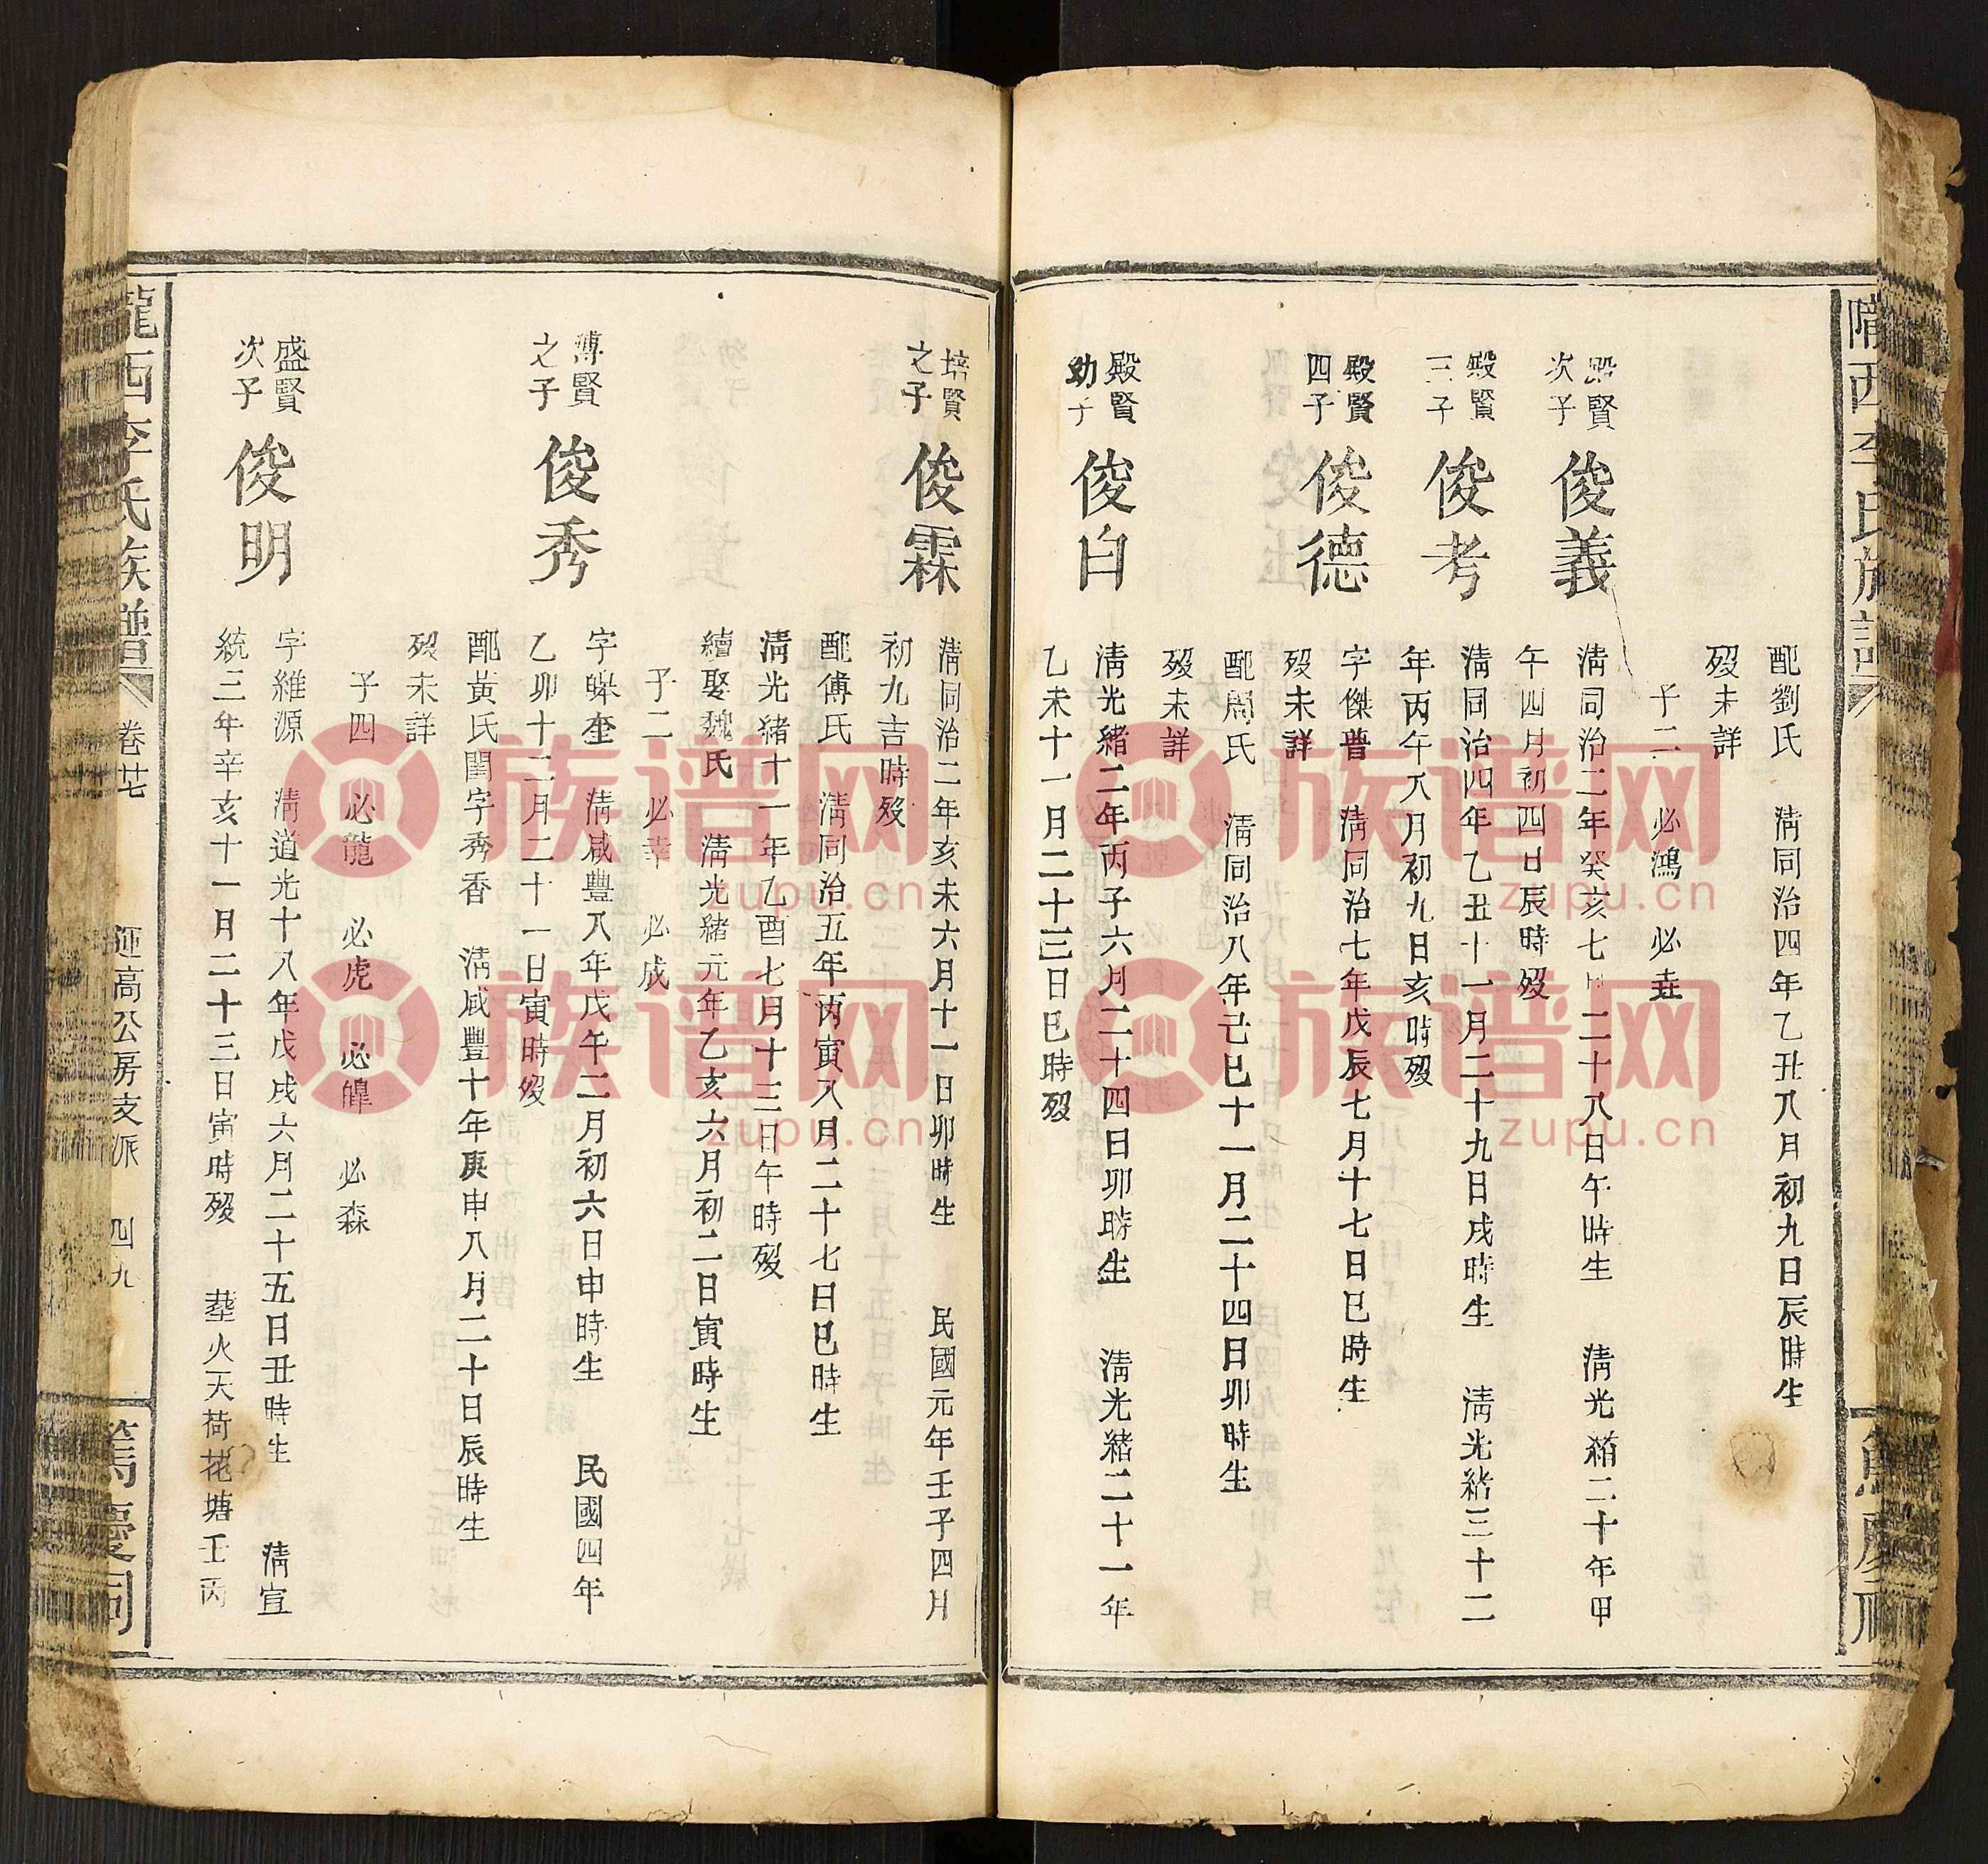 隴西李氏族譜
配劉氏 淸同治四年乙丑八月初九日辰時生
歿未詳
子二 必鴻 必垚
殿賢次子 俊義
淸同治二年癸亥七月二十八日午時生 淸光緒二十年甲
午四月初四日辰時歿
殿賢三子 俊考
淸同治四年乙丑十一月二十九日戌時生 淸光緒三十二
年丙午八月初九日亥時歿
殿賢四子 俊德
字傑普 淸同治七年戊辰七月十七日巳時生
歿未詳
配閻氏 淸同治八年己巳十一月二十四日卯時生
歿未詳
殿賢幼子 俊白
淸光緒二年丙子六月二十四日卯時生 淸光緒二十一年
乙未十一月二十三日巳時歿
培賢之子 俊霖
淸同治二年亥未六月十一日卯時生 民國元年壬子四月
初九吉時歿
配傅氏 淸同治五年丙寅八月二十七日巳時生
淸光緒十一年乙酉七月十三日午時歿
續娶魏氏 淸光緒元年乙亥六月初二日寅時生
子二 必幸 必成
溥賢之子 俊秀
字皞奎 淸咸豐八年戊午二月初六日申時生 民國四年
乙卯十二月二十一日寅時歿
配黃氏閨字秀香 淸咸豐十年庚申八月二十日辰時生
歿未詳
子四 必龍 必虎 必皡 必森
盛賢次子 俊明
字維源 淸道光十八年戊戌六月二十五日丑時生 淸宣
統三年辛亥十一月二十三日寅時歿 塟火天荷花塘壬丙
隴西李氏族譜 卷廿七 高公房支派 四九 篤慶祠
族谱网
zupu.cn
族谱网
zupu.cn
族谱网
zupu.cn
族谱网
zupu.cn